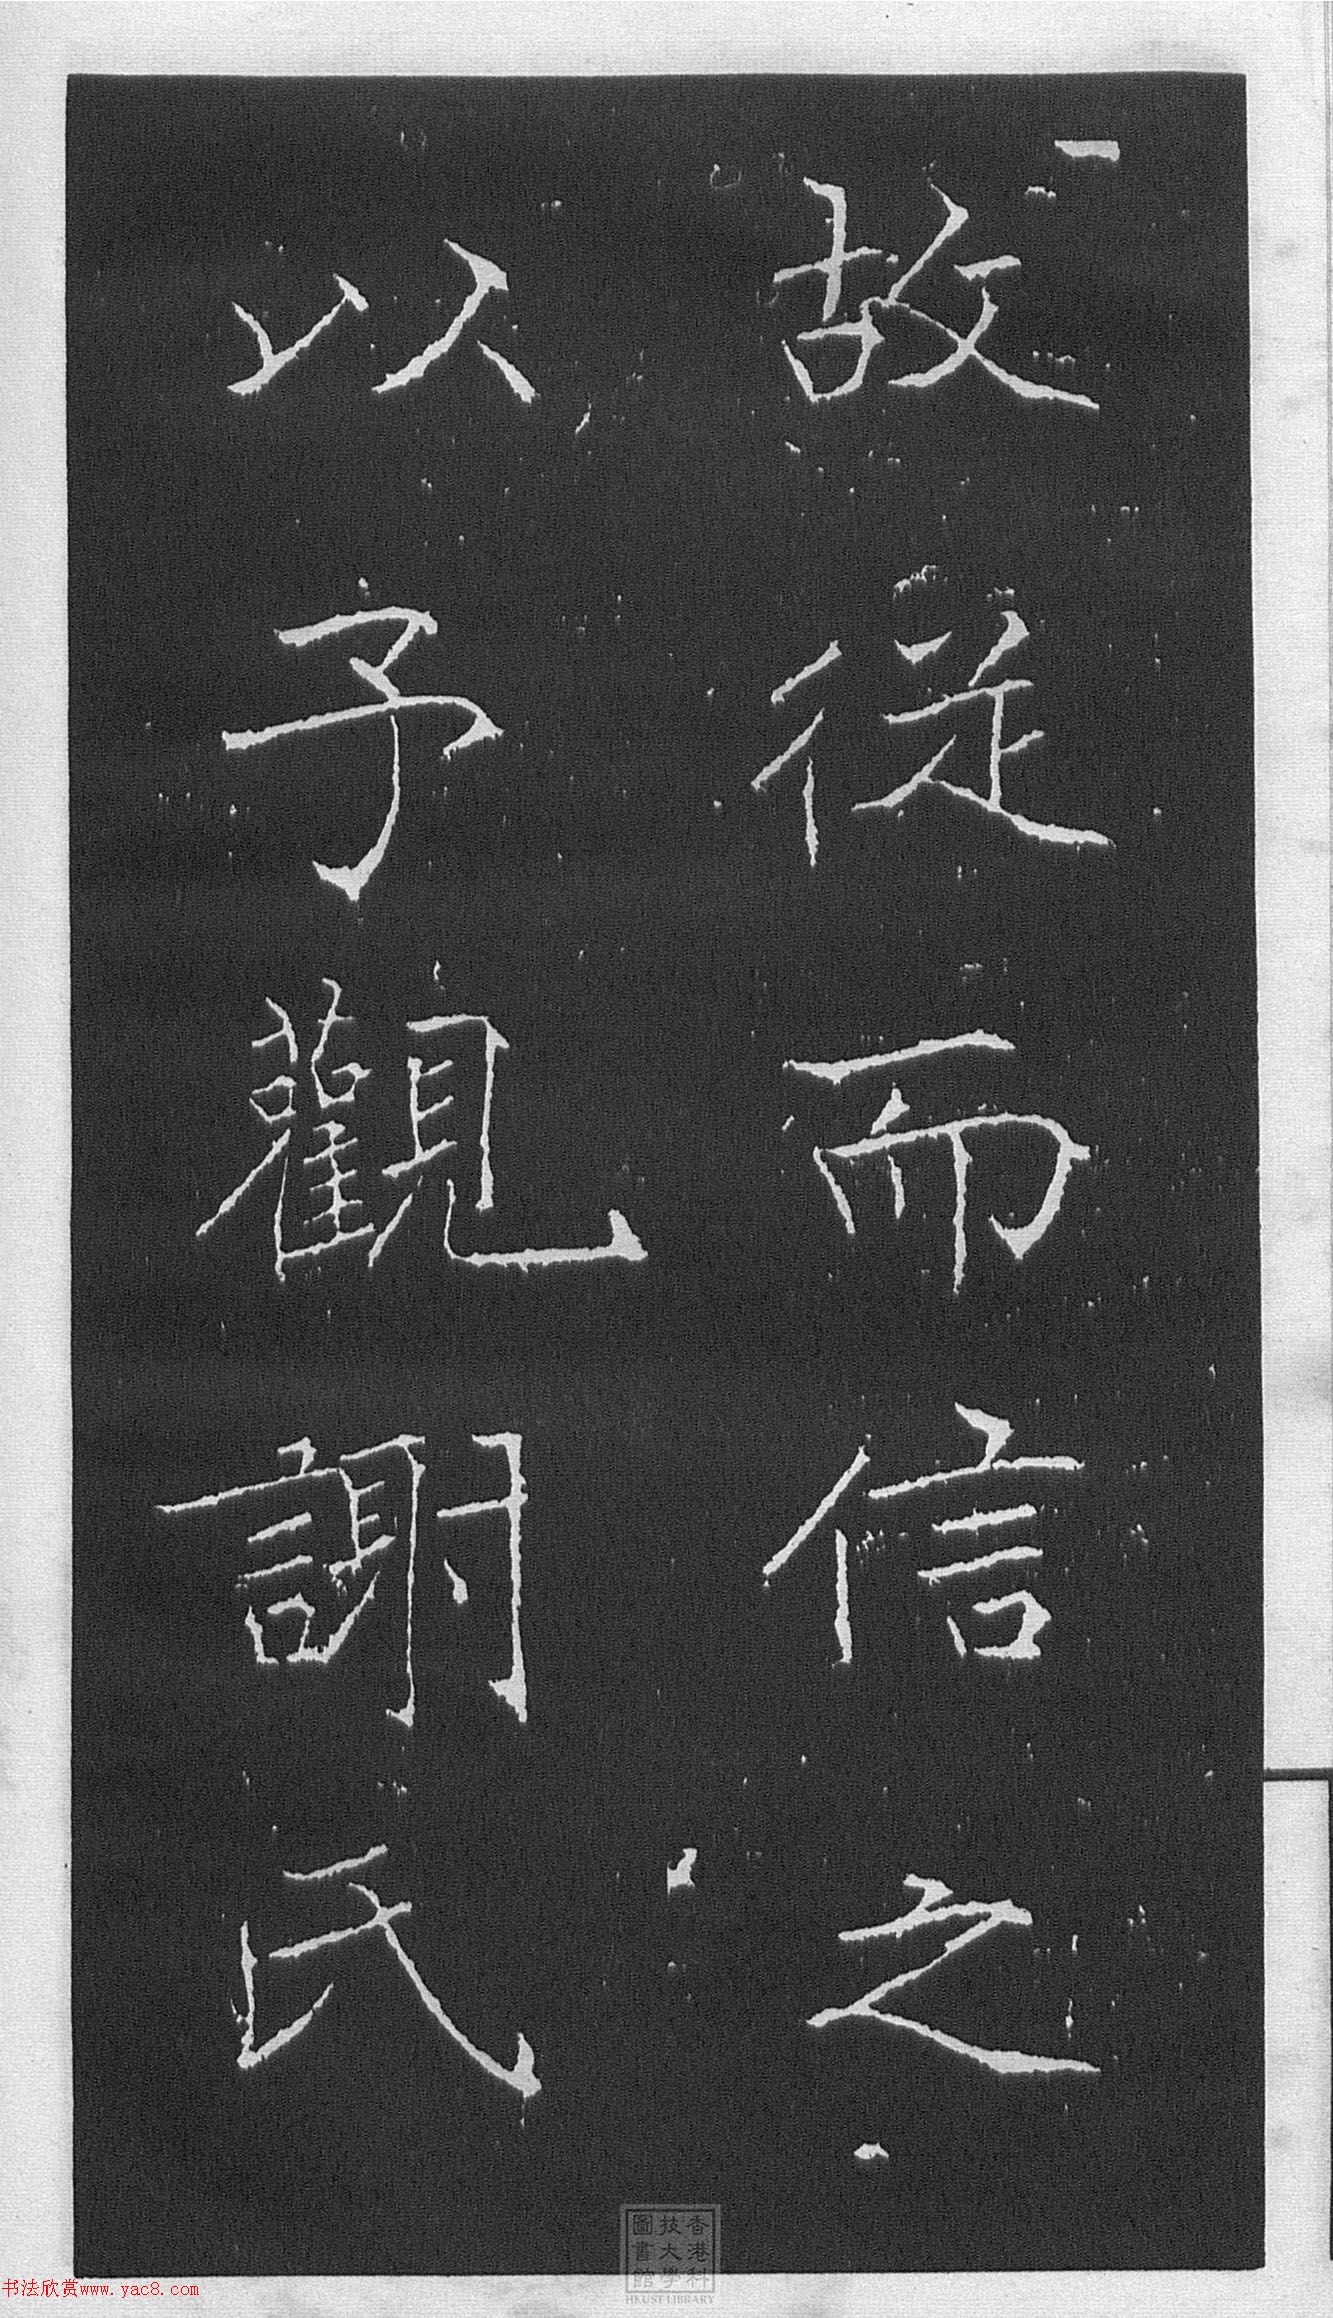 故從而信之
以予觀謝氏
香港科
技大學
圖書館
HKUST LIBRARY
书法欣赏www.yac8.com